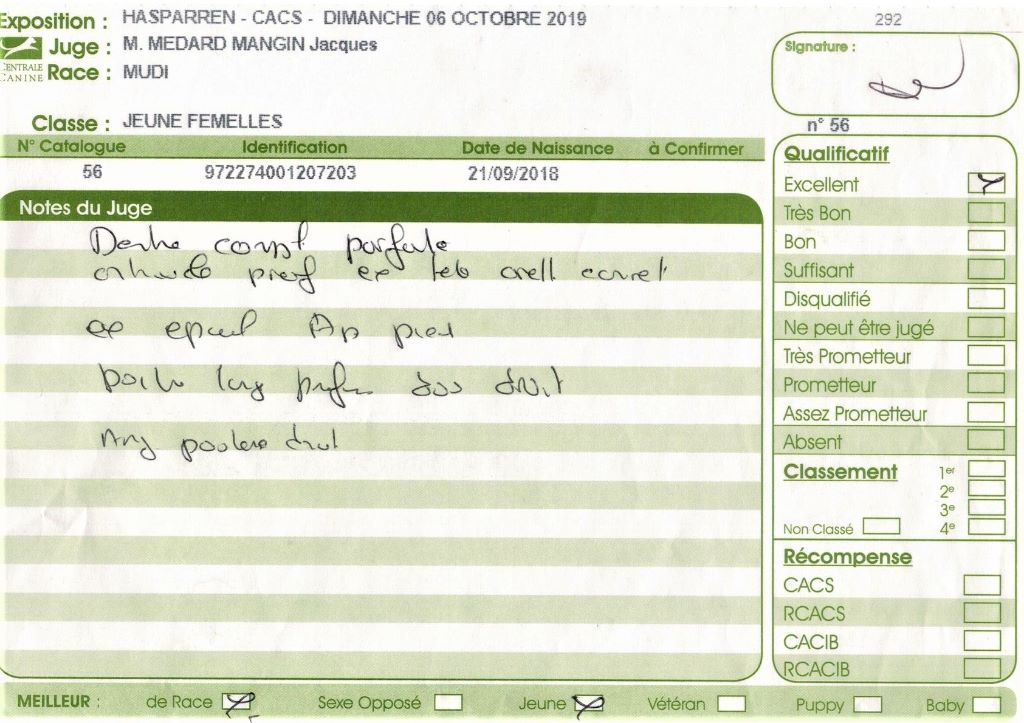 Exposition : HASPARREN - CACS - DIMANCHE 06 OCTOBRE 2019
292
CENTRALE CANINE
Juge : M. MEDARD MANGIN Jacques
Race : MUDI
Signature :
Classe : JEUNE FEMELLES
n° 56
N° Catalogue Identification Date de Naissance à Confirmer
56 972274001207203 21/09/2018
Notes du Juge
parfaite
ex correct
ex
long dos droit
droit
Qualificatif
Excellent
Très Bon
Bon
Suffisant
Disqualifié
Ne peut être jugé
Très Prometteur
Prometteur
Assez Prometteur
Absent
Classement 1er
2e
3e
Non Classé 4e
Récompense
CACS
RCACS
CACIB
RCACIB
MEILLEUR : de Race Sexe Opposé Jeune Vétéran Puppy Baby